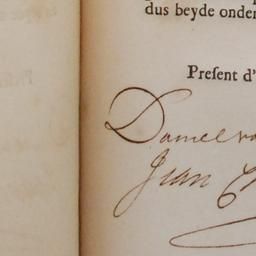 dus beyde onder
Preſent d'
Daniel va
Jean